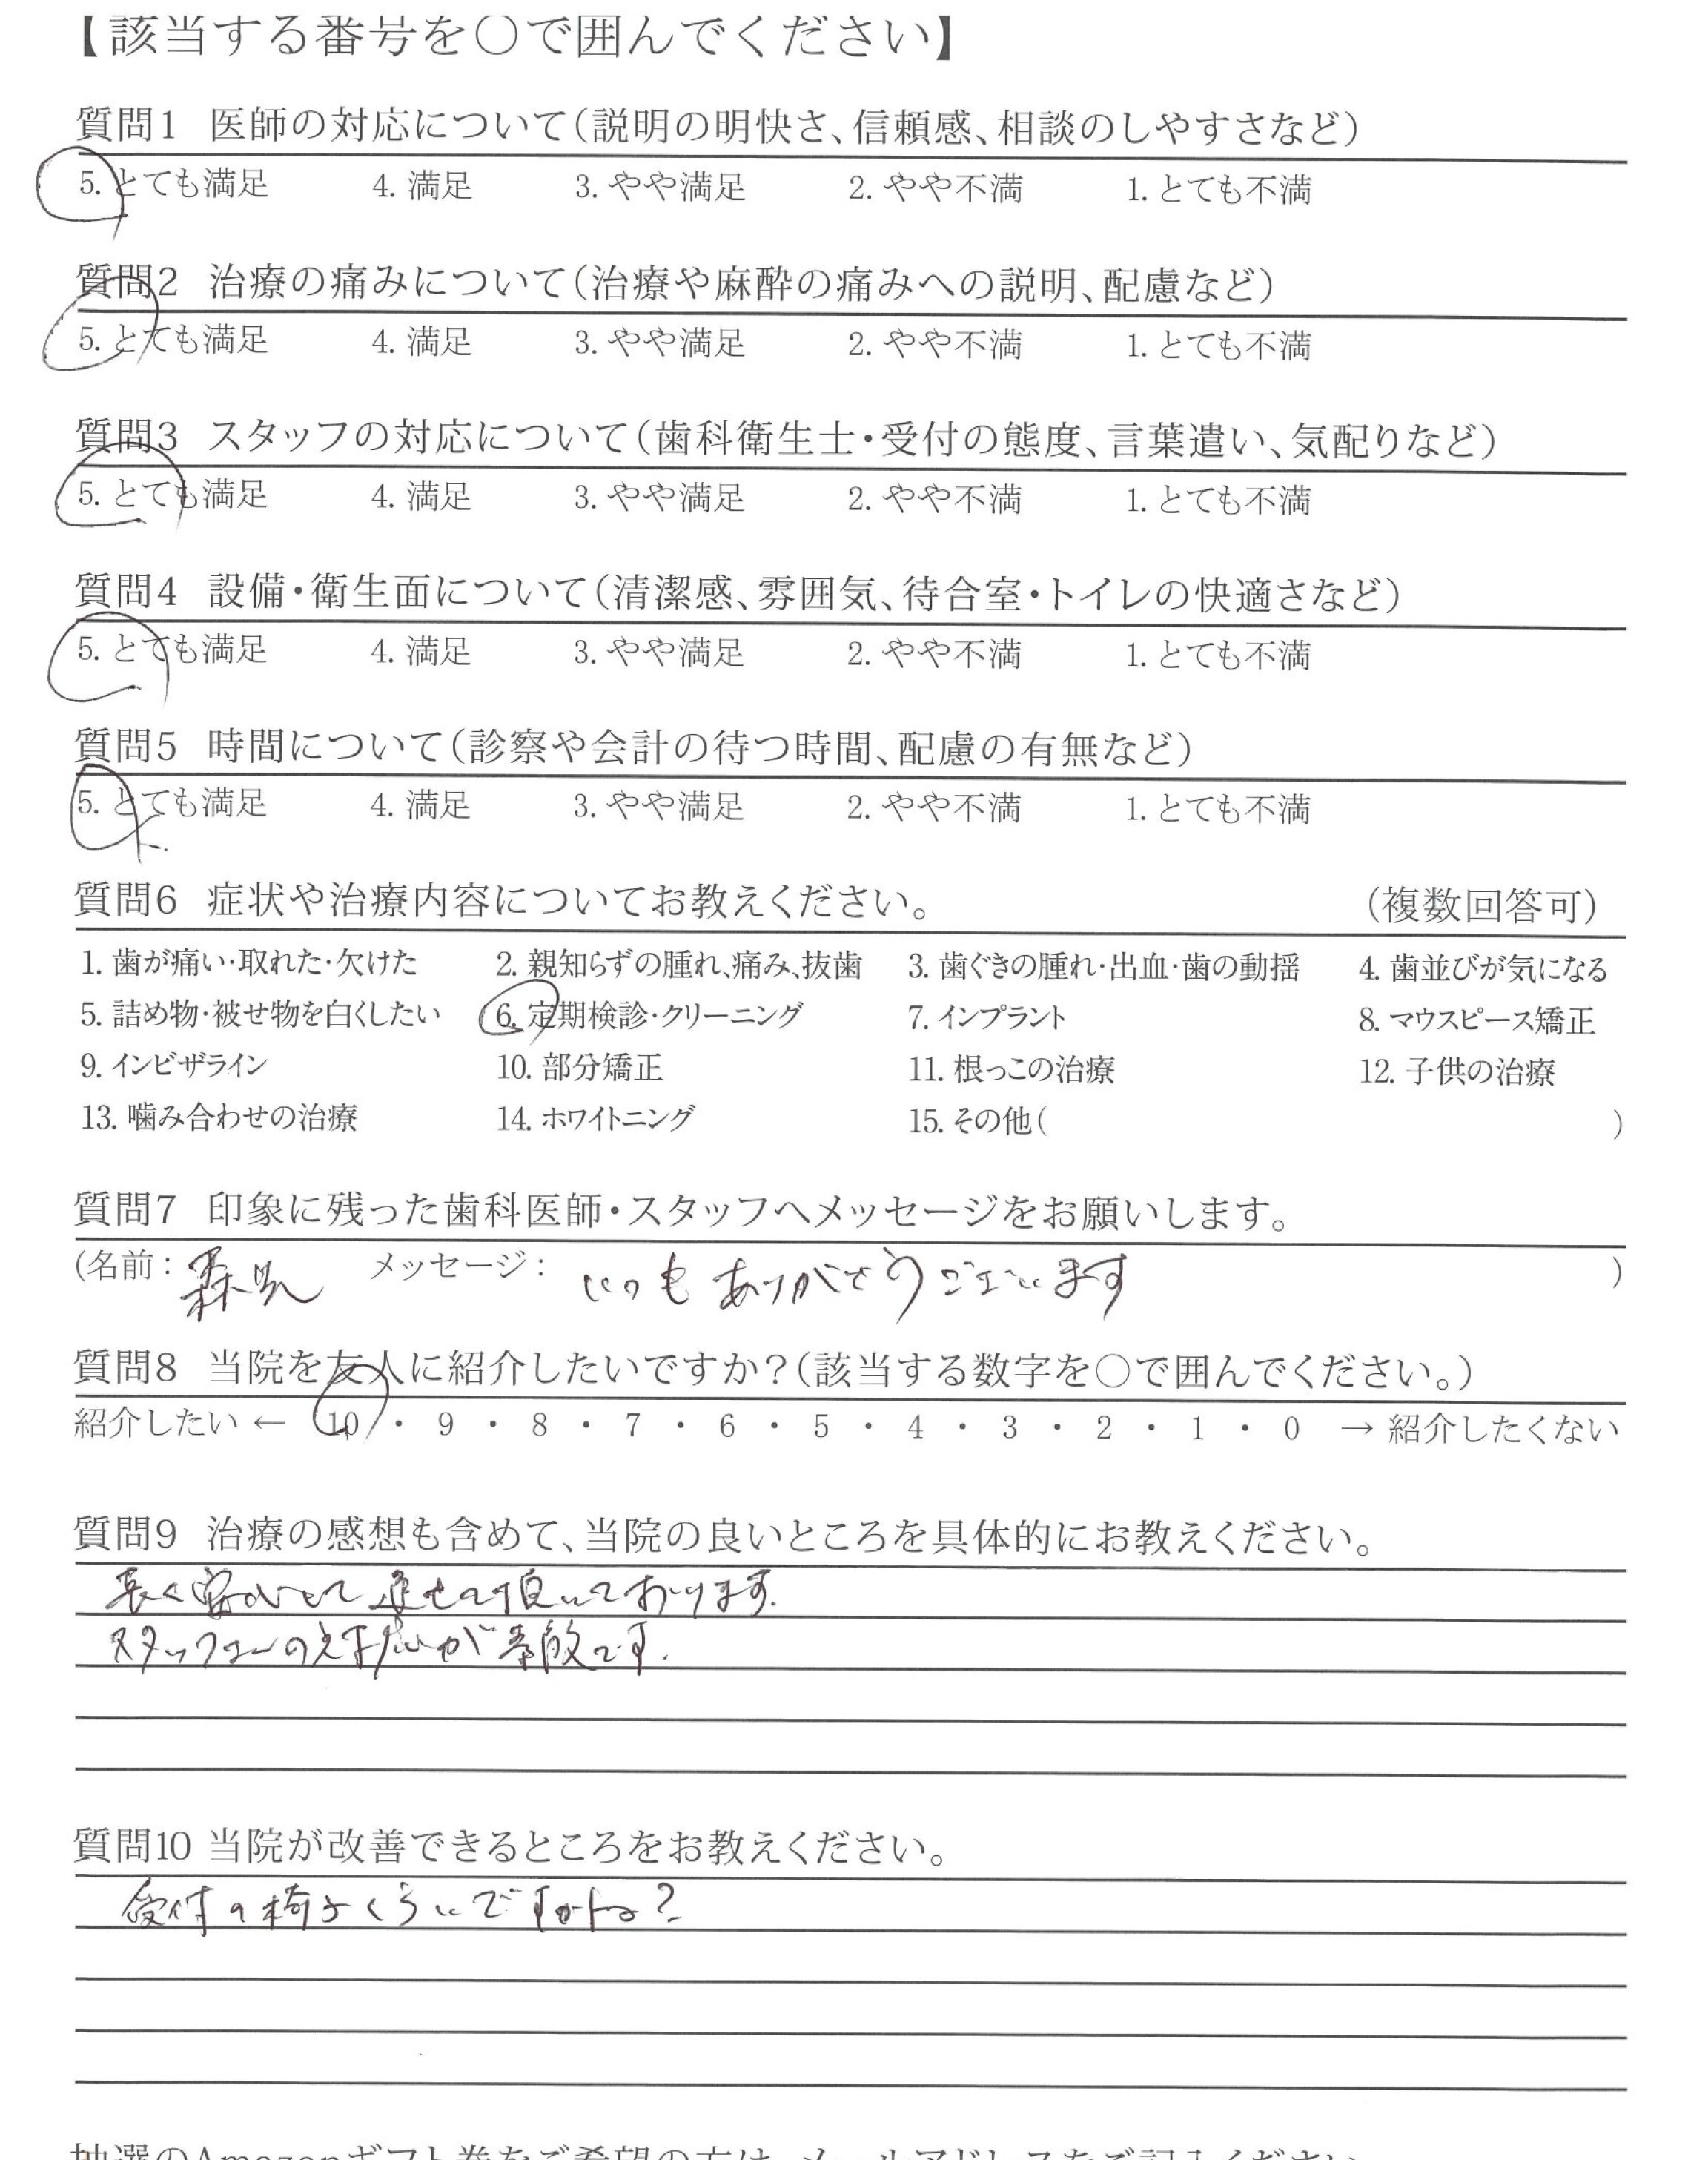 【該当する番号を〇で囲んでください】
質問1 医師の対応について(説明の明快さ、信頼感、相談のしやすさなど)
5. とても満足 4. 満足 3. やや満足 2. やや不満 1. とても不満
質問2 治療の痛みについて(治療や麻酔の痛みへの説明、配慮など)
5. とても満足 4. 満足 3. やや満足 2. やや不満 1. とても不満
質問3 スタッフの対応について(歯科衛生士・受付の態度、言葉遣い、気配りなど)
5. とても満足 4. 満足 3. やや満足 2. やや不満 1. とても不満
質問4 設備・衛生面について(清潔感、雰囲気、待合室・トイレの快適さなど)
5. とても満足 4. 満足 3. やや満足 2. やや不満 1. とても不満
質問5 時間について(診察や会計の待つ時間、配慮の有無など)
5. とても満足 4. 満足 3. やや満足 2. やや不満 1. とても不満
質問6 症状や治療内容についてお教えください。 (複数回答可)
1. 歯が痛い・取れた・欠けた 2. 親知らずの腫れ、痛み、抜歯 3. 歯ぐきの腫れ・出血・歯の動揺 4. 歯並びが気になる
5. 詰め物・被せ物を白くしたい 6. 定期検診・クリーニング 7. インプラント 8. マウスピース矯正
9. インビザライン 10. 部分矯正 11. 根っこの治療 12. 子供の治療
13. 噛み合わせの治療 14. ホワイトニング 15. その他( )
質問7 印象に残った歯科医師・スタッフへメッセージをお願いします。
(名前: メッセージ: いつもありがとうございます )
質問8 当院を友人に紹介したいですか?(該当する数字を〇で囲んでください。)
紹介したい ← 10 ・ 9 ・ 8 ・ 7 ・ 6 ・ 5 ・ 4 ・ 3 ・ 2 ・ 1 ・ 0 → 紹介したくない
質問9 治療の感想も含めて、当院の良いところを具体的にお教えください。
長く せて頂いております.
スタッフさんの対応が素敵です.
質問10 当院が改善できるところをお教えください。
受付の椅子くらいですかね?
抽選のAmazonギフト券をご希望の方は、メールアドレスをご記入ください